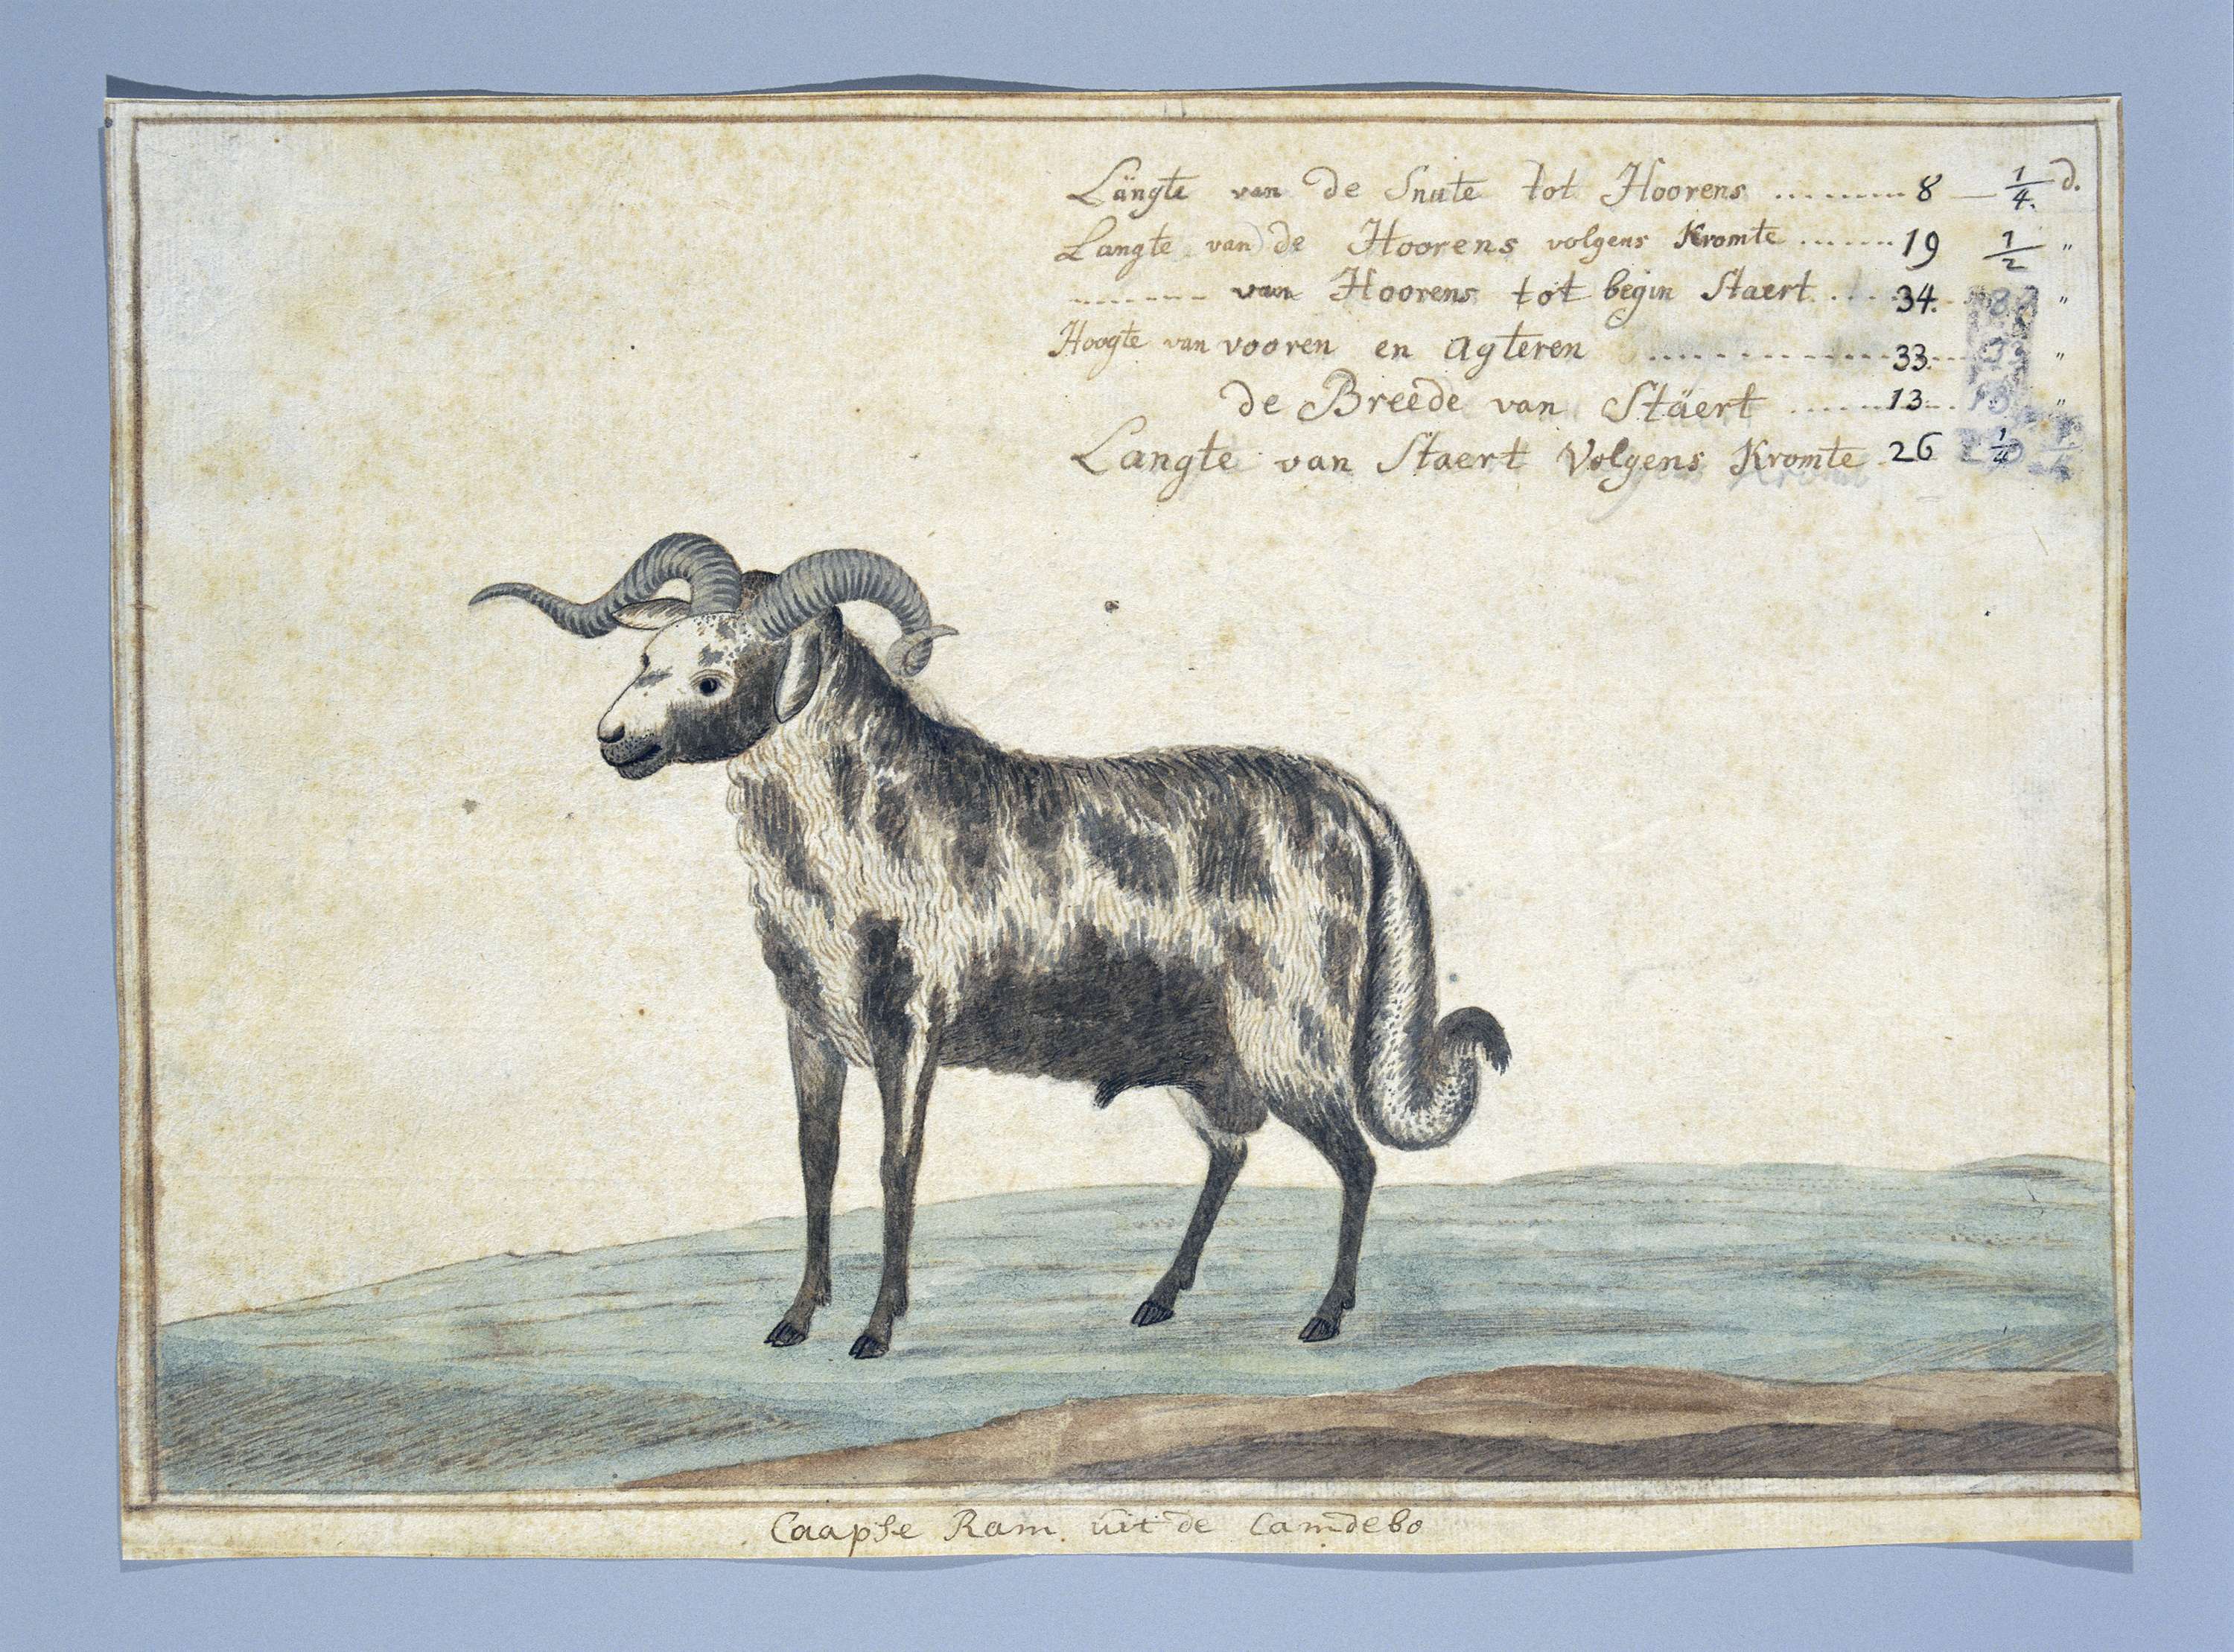 Längte van de Snute tot Hoorens ......... 8 — 1/4 d.
Langte van de Hoorens volgens Kromte ...... 19 1/2 "
------ van Hoorens tot begin Staert .... 34. "
Hoogte van vooren en agteren ............ 33. "
de Breede van Stäert ...... 13 "
Langte van Staert Volgens Kromte 26 1/4
Caapse Ram uit de Camdebo